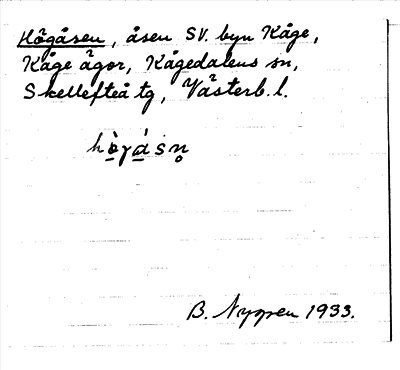 Högåsen, åsen SV. byn Kåge,
Kåge ägor, Kågedalens sn,
Skellefteå tg, Västerb. l.
hò̱γá̱sn̥
B. Nygren 1933.